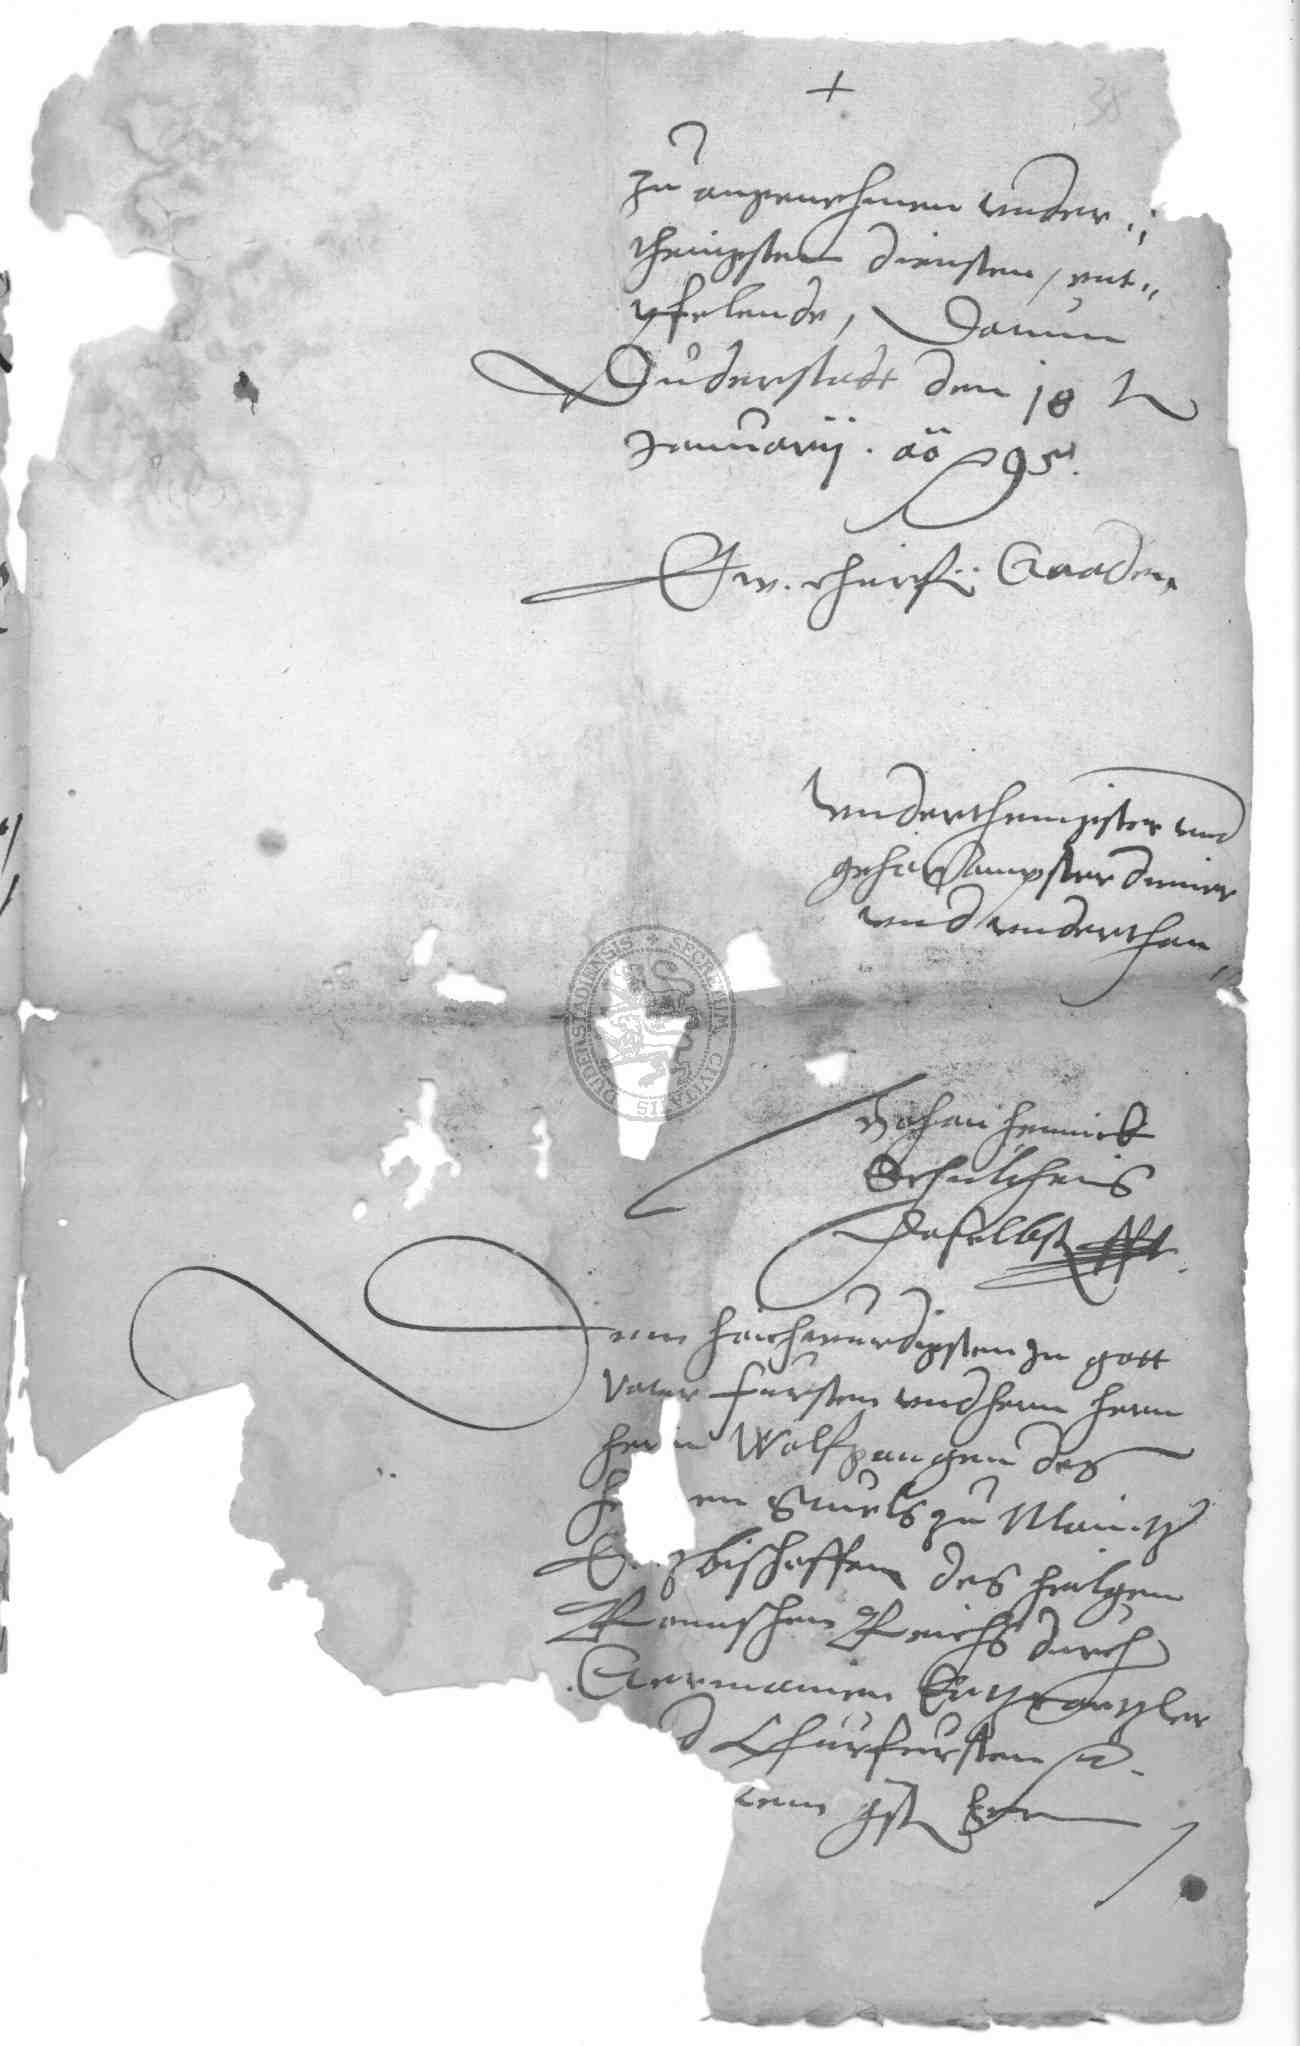 +
38
zu angenehmen under,,
thenigsten diensten, ent,,
pfelende, Datum
Duderstadt den 18
Januarij . ao 95.
Ew. churf. Gnaden
underthenigster und
gehorsampster diener
und underthan
Johan Henrick
Schultheis
daselbst
Dem hochwurdigsten in gott
Vater fursten und hern hern
hern Wolfgangen des
h en Stuels zu Maintz
E zbischoffen des heilgen
Romischen Reichs durch
Germanien Ertzcantzler
d Churfursten
em gst hern
DUDERSTADIENSIS SECRETUM CIVITATIS